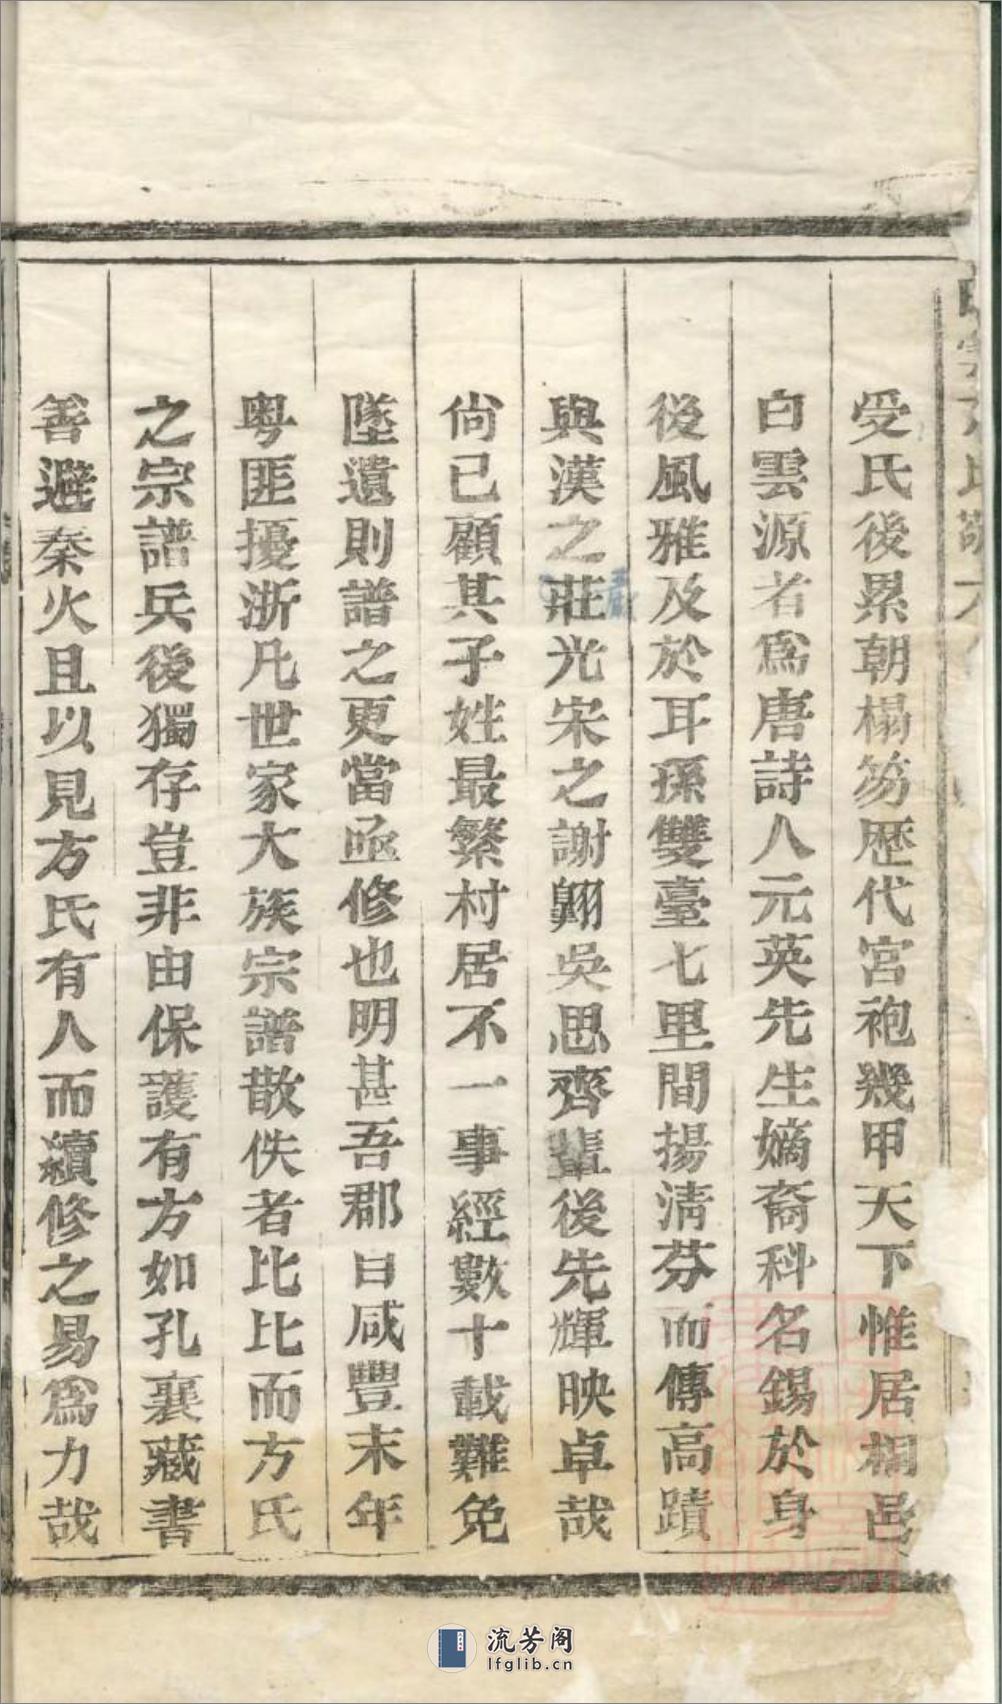 受氏後累朝榻笏歴代宮袍幾甲天下惟居桐邑
白雲源者爲唐詩人元英先生嫡裔科名錫於身
後風雅及於耳孫雙臺七里間揚淸芬而傳高蹟
與漢之莊光宋之謝翺吳思齊輩後先輝映卓哉
尙已顧其子姓最繁村居不一事經數十載難免
墜遺則譜之更當亟修也明甚吾郡曰咸豐末年
粤匪擾浙凡世家大族宗譜散佚者比比而方氏
之宗譜兵後獨存豈非由保護有方如孔襄藏書
善避秦火且以見方氏有人而續修之易爲力哉
流芳阁
lfglib.cn